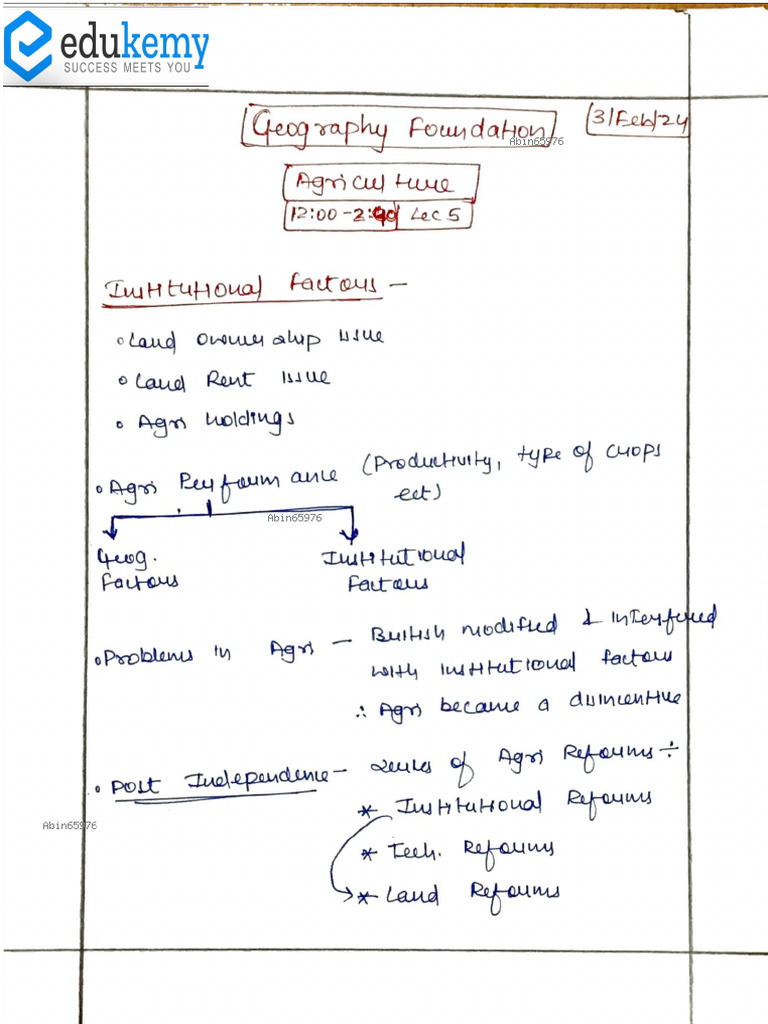 edukemy
SUCCESS MEETS YOU
Geography Foundation
3/Feb/24
Abin65976
Agriculture
12:00 - 2:00 Lec 5
Institutional Factors -
Land ownership issue
Land Rent issue
Agri holdings
Agri Performance (Productivity, type of crops
ect)
Abin65976
Geog. Institutional
Factors Factors
Problems in Agri - British modified & interfered
with institutional factors
∴ Agri became a disincentive
Post Independence - series of Agri Reforms ÷
* Institutional Reforms
Abin65976
* Tech. Reforms
* Land Reforms